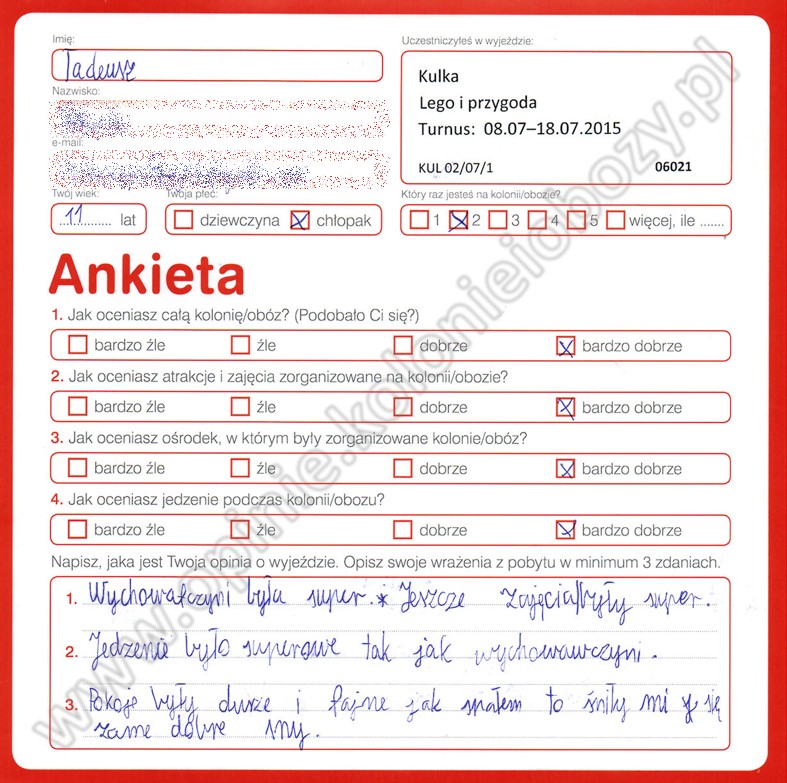 Imię:
Uczestniczyłeś w wyjeździe:
Tadeusz
Kulka
Lego i przygoda
Turnus: 08.07–18.07.2015
KUL 02/07/1 06021
Nazwisko:
e-mail:
Twój wiek:
Twoja płeć:
Który raz jesteś na kolonii/obozie?
11 lat
dziewczyna chłopak
1 2 3 4 5 więcej, ile .......
Ankieta
1. Jak oceniasz całą kolonię/obóz? (Podobało Ci się?)
bardzo źle źle dobrze bardzo dobrze
2. Jak oceniasz atrakcje i zajęcia zorganizowane na kolonii/obozie?
bardzo źle źle dobrze bardzo dobrze
3. Jak oceniasz ośrodek, w którym były zorganizowane kolonie/obóz?
bardzo źle źle dobrze bardzo dobrze
4. Jak oceniasz jedzenie podczas kolonii/obozu?
bardzo źle źle dobrze bardzo dobrze
Napisz, jaka jest Twoja opinia o wyjeździe. Opisz swoje wrażenia z pobytu w minimum 3 zdaniach.
1. Wychowafczyni była super.* Jeszcze zajęcia były super.
2. Jedzenie było superowe tak jak wychowawczyni.
3. Pokoje były durze i fajne jak spałem to śniły mi się
same dobre sny.
www.opinie.kolonieiobozy.pl